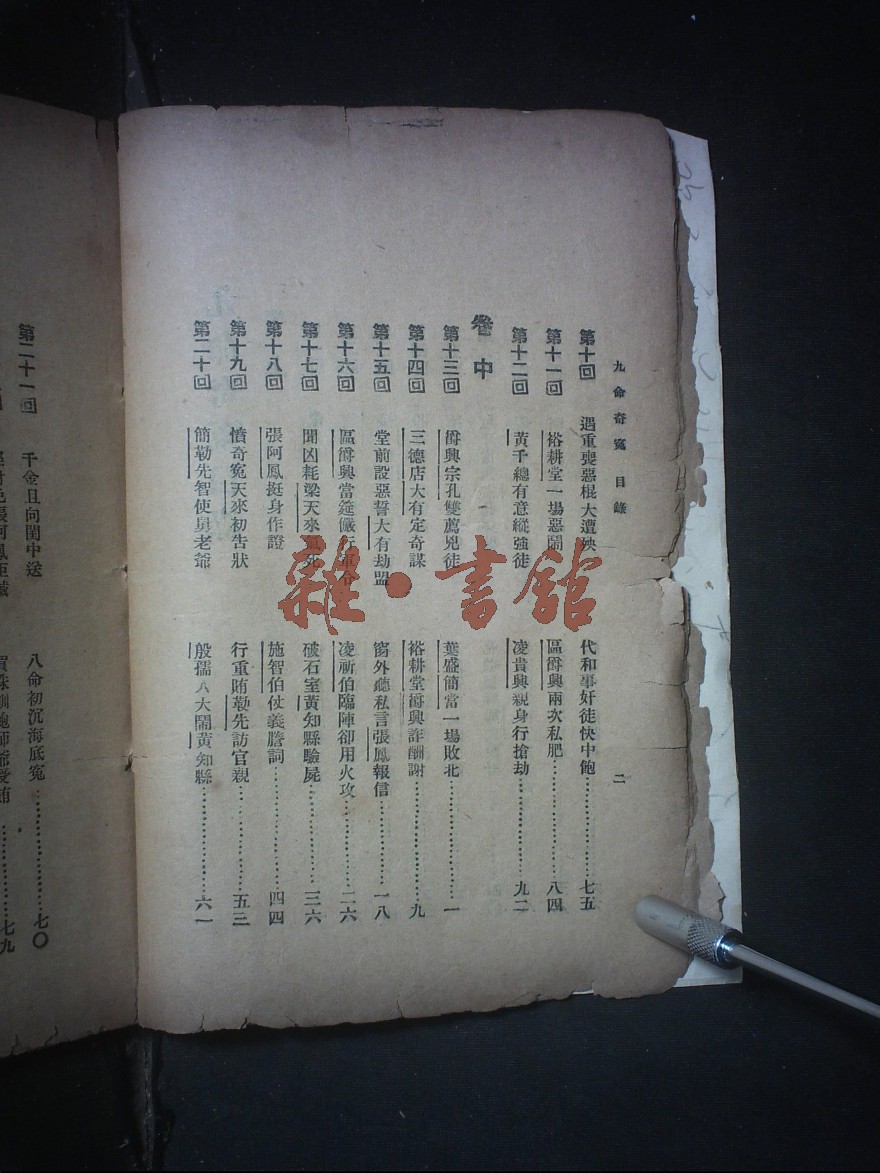 九命奇冤 目錄 二
第十回 遇重喪惡棍大遭殃 代和事奸徒快中飽……七五
第十一回 裕耕堂一場惡鬧 區爵興兩次私肥……八四
第十二回 黃千總有意縱強徒 凌貴興親身行搶劫……九二
卷中
第十三回 爵興宗孔雙薦兇徒 葉盛簡當一場敗北……一
第十四回 三德店大有定奇謀 裕耕堂爵興詐酬謝……九
第十五回 堂前設惡誓大有劫盟 窗外聽私言張鳳報信……一八
第十六回 區爵興當筵儼行軍令 凌祈伯臨陣卻用火攻……二六
第十七回 聞凶耗梁天來氣死 破石室黃知縣驗屍……三六
第十八回 張阿鳳挺身作證 施智伯仗義膽詞……四四
第十九回 憤奇冤天來初告狀 行重賄勒先訪官親……五三
第二十回 簡勒先智使舅老爺 殷孺人大鬧黃知縣……六一
第二十一回 千金且向閨中送 八命初沉海底冤……七〇
張阿鳳 師爺受賄……七九
雜·書館